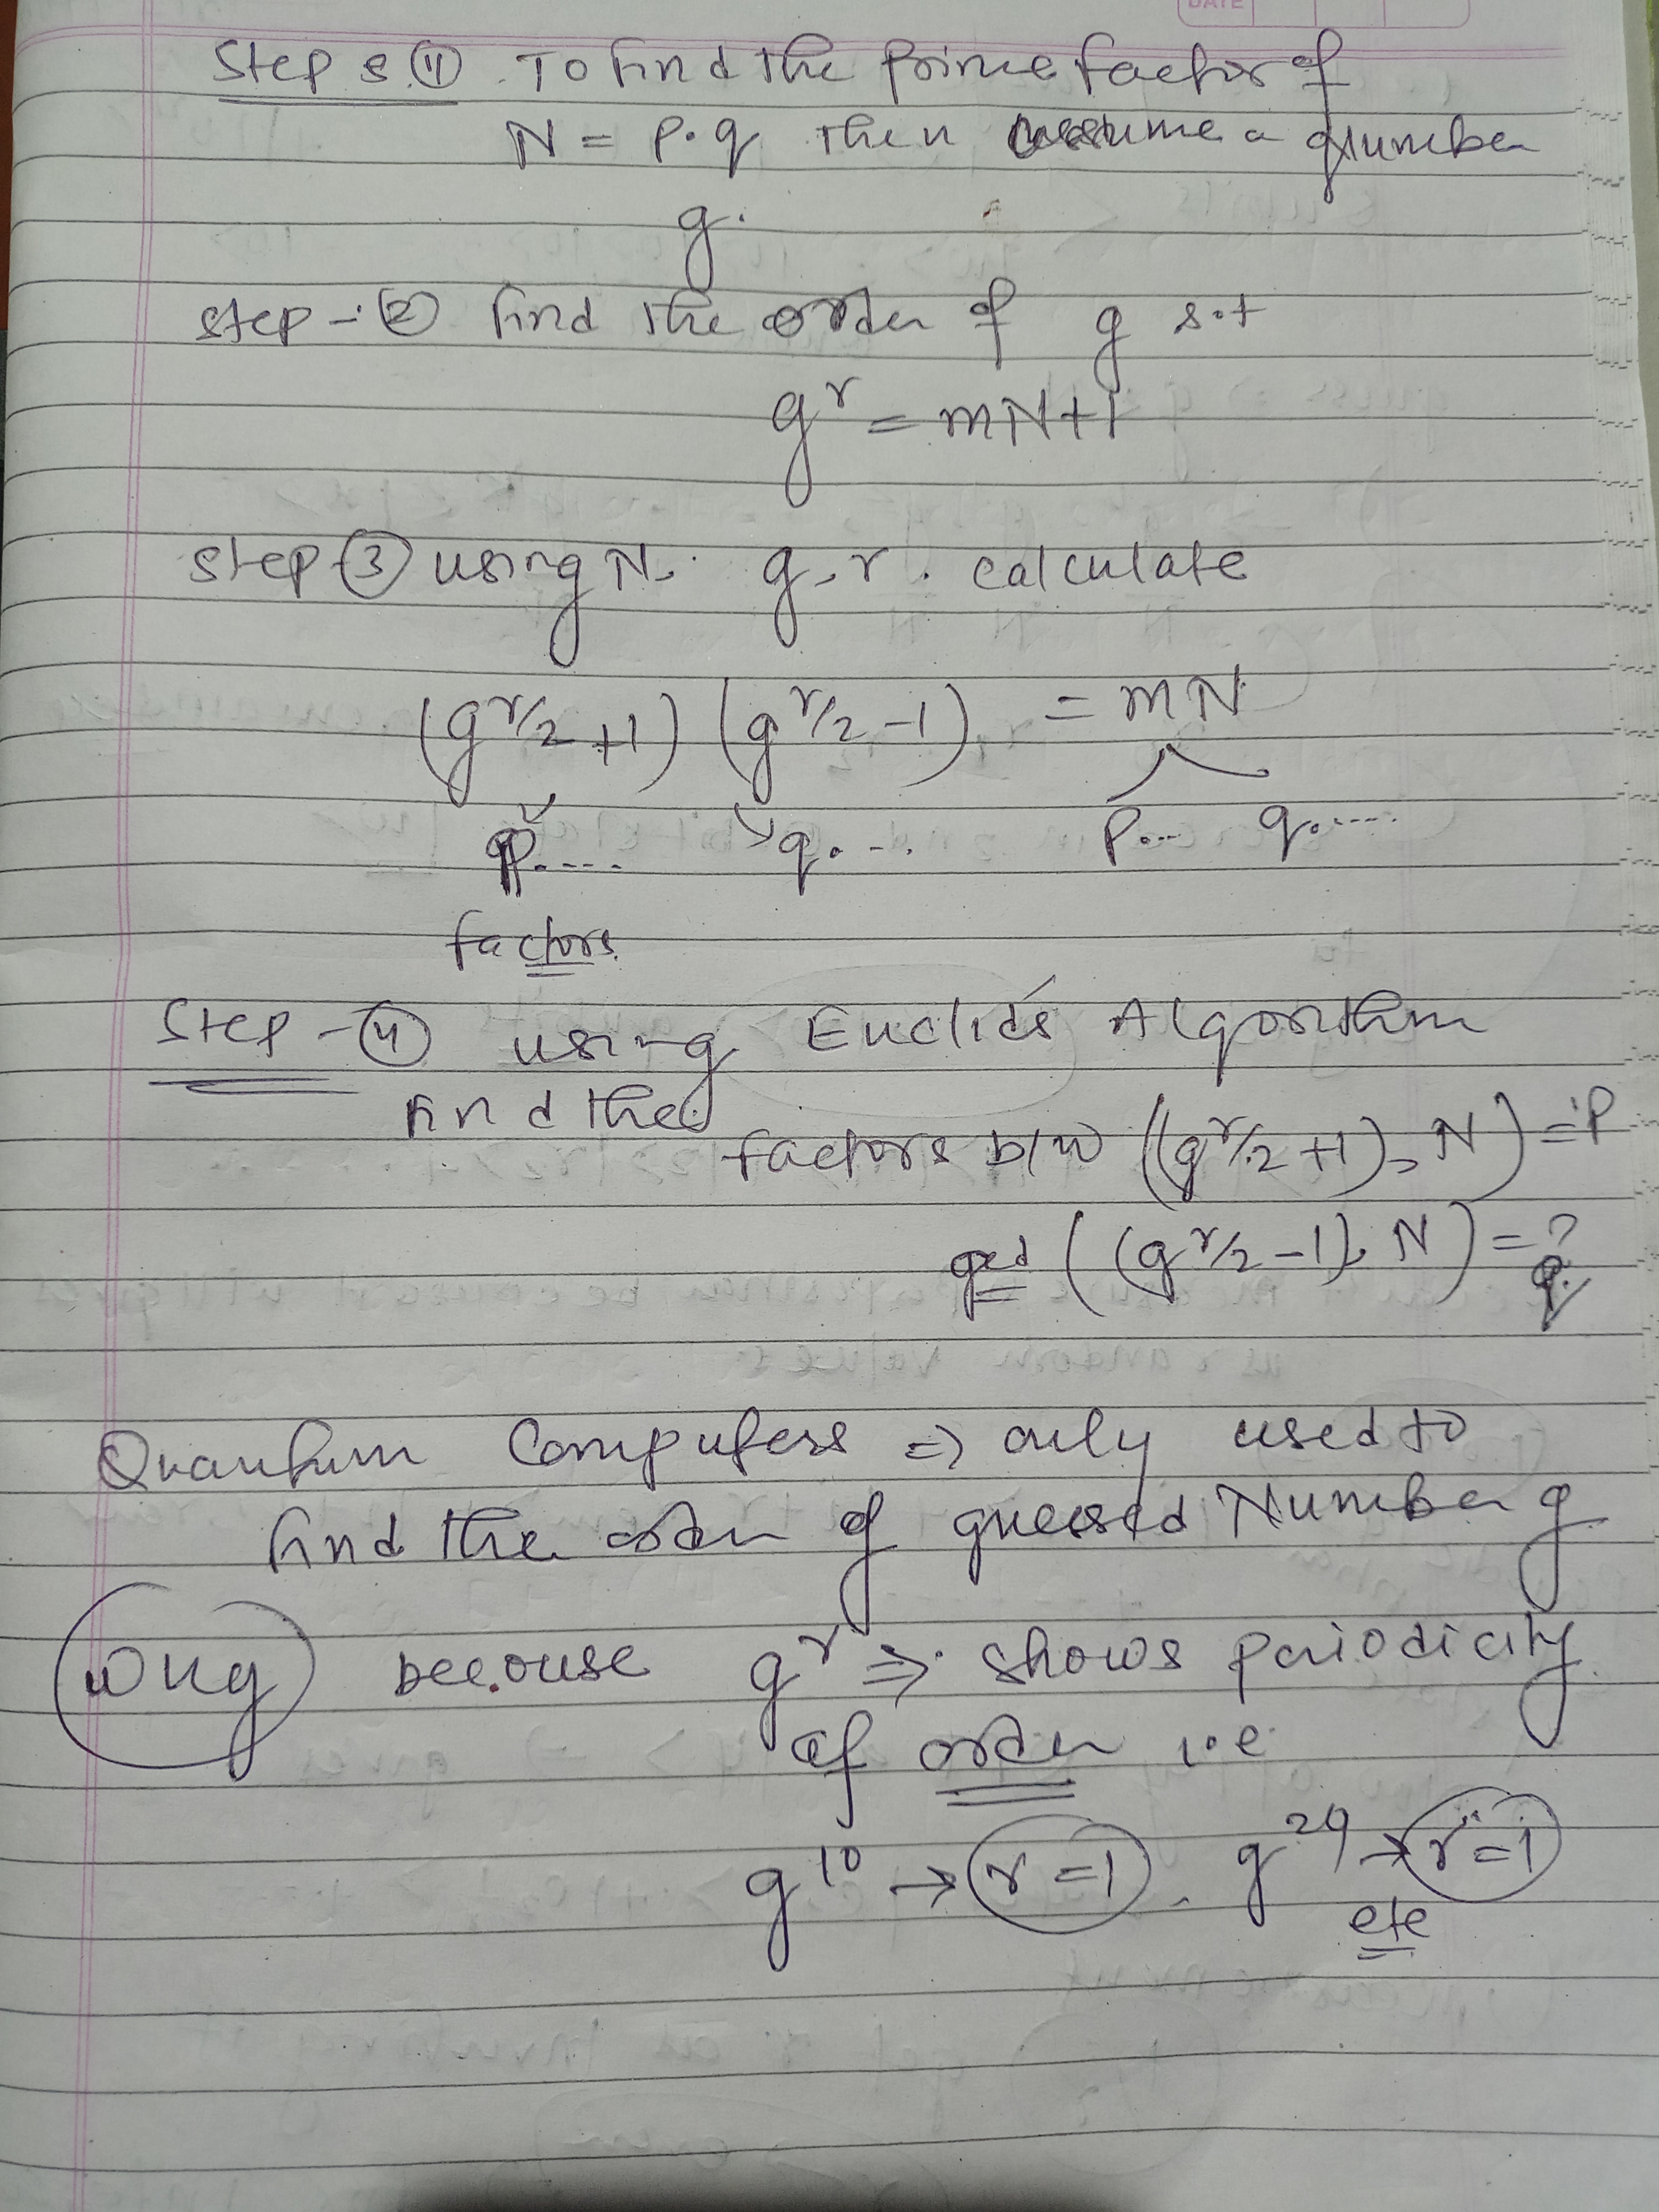 DATE
Steps ① To find the prime factor of
N = p.q then assume a number
g.
step - ② find the order of g s.t
g^r = mN+1
step ③ using N, g, r. calculate
(g^r/2 +1) (g^r/2 -1) = mN
p.... q.... p... q.....
factors
Step - ④ using Euclid's Algorithm
find the
factors b/w ((g^r/2 +1), N) = p
gcd ((g^r/2 -1), N) = ?
q.
Quantum Computers => only used to
find the order of guessed Number g
why because g^r => shows periodicity
of order i.e
g^10 → r=1, g^20 → r=1
etc